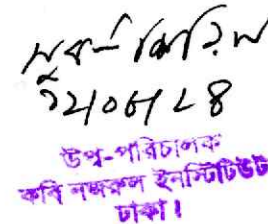 ১২/০৬/২৪
উপ-পরিচালক
কবি নজরুল ইনস্টিটিউট
ঢাকা।